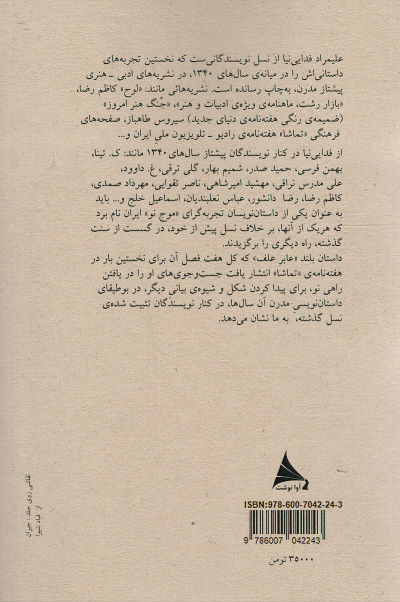 علیمراد فدایی‌نیا از نسل نویسندگانی‌ست که نخستین تجربه‌های
داستانی‌اش را در میانه‌ی سال‌های ۱۳۴۰، در نشریه‌های ادبی ـ هنری
پیشتاز مدرن، به‌چاپ رسانده است. نشریه‌هائی مانند: «لوح» کاظم رضا،
«بازار رشت، ماهنامه‌ی ویژه‌ی ادبیات و هنر»، «جُنگ هنر امروز»
(ضمیمه‌ی رنگی هفته‌نامه‌ی دنیای جدید) سیروس طاهباز، صفحه‌های
فرهنگی «تماشا» هفته‌نامه‌ی رادیو ـ تلویزیون ملی ایران و...
از فدایی‌نیا در کنار نویسندگان پیشتاز سال‌های ۱۳۴۰ مانند: ک. تینا،
بهمن فرسی، حمید صدر، شمیم بهار، گلی ترقی، غ. داوود،
علی مدرس نراقی، مهشید امیرشاهی، ناصر تقوایی، مهرداد صمدی،
کاظم رضا، رضا دانشور، عباس نعلبندیان، اسماعیل خلج و... باید
به عنوان یکی از داستان‌نویسان تجربه‌گرای «موج نو» ایران نام برد
که هریک از آنها، بر خلاف نسل پیش از خود، در گسست از سنت
گذشته، راه دیگری را برگزیدند.
داستان بلند «عابر علف» که کل هفت فصل آن برای نخستین بار در
هفته‌نامه‌ی «تماشا» انتشار یافت جست‌وجوی‌های او را در یافتن
راهی نو، برای پیدا کردن شکل و شیوه‌ی بیانی دیگر، در بوطیقای
داستان‌نویسی مدرن آن سال‌ها، در کنار نویسندگان تثبیت شده‌ی
نسل گذشته، به ما نشان می‌دهد.
نقاشی روی جلد: جیران
از قباد شیوا
آوا نوشت
ISBN:978-600-7042-24-3
9 786007 042243
۳۵۰۰۰ تومن